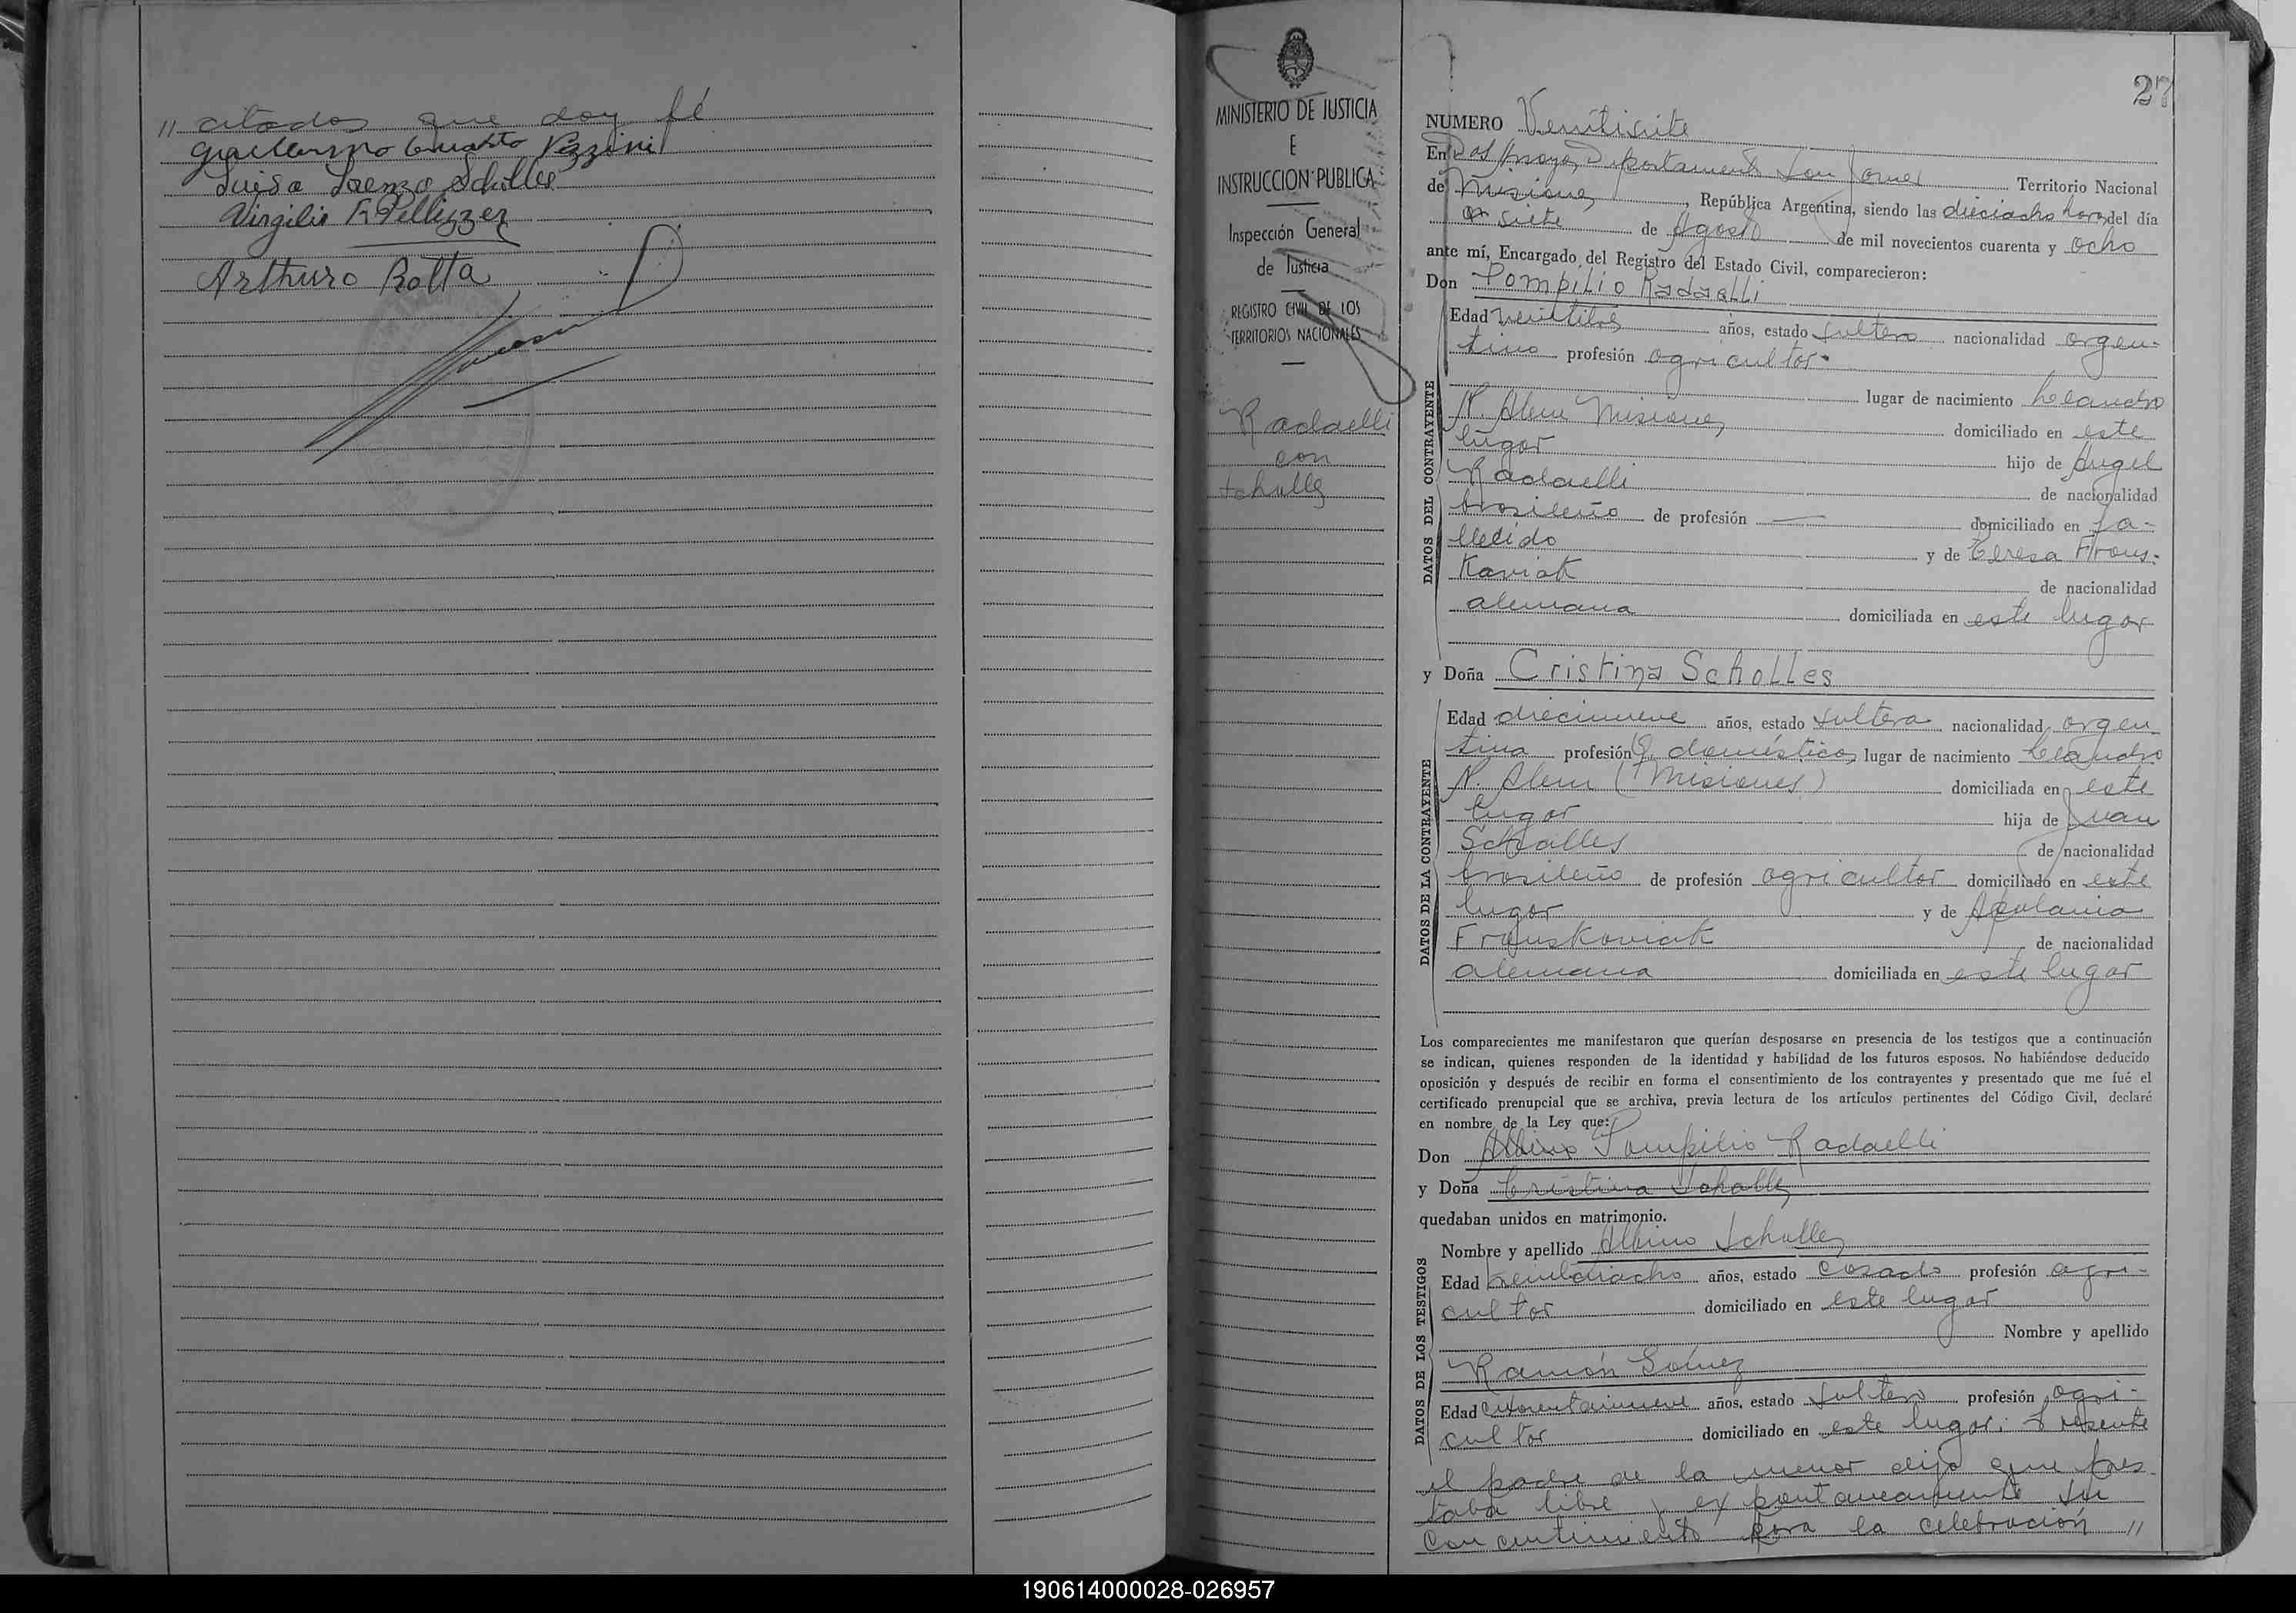 " citados que doy fé
Guillermo Pizzini
Luisa Lorenzo Scholles
Virgilio F. Pellizzer
Arthuro Rotta
MINISTERIO DE JUSTICIA
E
INSTRUCCION PUBLICA
Inspección General
de Justicia
REGISTRO CIVIL DE LOS
TERRITORIOS NACIONALES
Radaelli
con
Scholles
27
NUMERO Ventisiete
En Dos Arroyos, Departamento San Javier Territorio Nacional
de Misiones, República Argentina, siendo las dieciocho horas del día
siete de Agosto de mil novecientos cuarenta y ocho
ante mí, Encargado del Registro del Estado Civil, comparecieron:
Don Pompilio Radaelli
DATOS DEL CONTRAYENTE
Edad años, estado soltero nacionalidad argen-
tino profesión agricultor
lugar de nacimiento Leandro
N. Alem Misiones domiciliado en este
lugar hijo de Angel
Radaelli de nacionalidad
brasileño de profesión — domiciliado en fa-
llecido y de Teresa Frous-
koviak de nacionalidad
alemana domiciliada en este lugar
y Doña Cristina Scholles
DATOS DE LA CONTRAYENTE
Edad diecinueve años, estado soltera nacionalidad argen
tina profesión Q. domésticos lugar de nacimiento Leandro
N. Alem (Misiones) domiciliada en este
lugar hija de Juan
Scholles de nacionalidad
brasileño de profesión agricultor domiciliado en este
lugar y de Apolonia
Frouskoviak de nacionalidad
alemana domiciliada en este lugar
Los comparecientes me manifestaron que querían desposarse en presencia de los testigos que a continuación
se indican, quienes responden de la identidad y habilidad de los futuros esposos. No habiéndose deducido
oposición y después de recibir en forma el consentimiento de los contrayentes y presentado que me fué el
certificado prenupcial que se archiva, previa lectura de los artículos pertinentes del Código Civil, declaré
en nombre de la Ley que:
Don Albino Pompilio Radaelli
y Doña Cristina Scholles
quedaban unidos en matrimonio.
DATOS DE LOS TESTIGOS
Nombre y apellido Albino Scholles
Edad ventiocho años, estado casado profesión agri-
cultor domiciliado en este lugar
Nombre y apellido
Ramón Gómez
Edad cuarentainueve años, estado soltero profesión agri-
cultor domiciliado en este lugar. Presente
el padre de la menor dijo que pres
taba libre y expontaneamente su
concentimiento para la celebración "
190614000028-026957